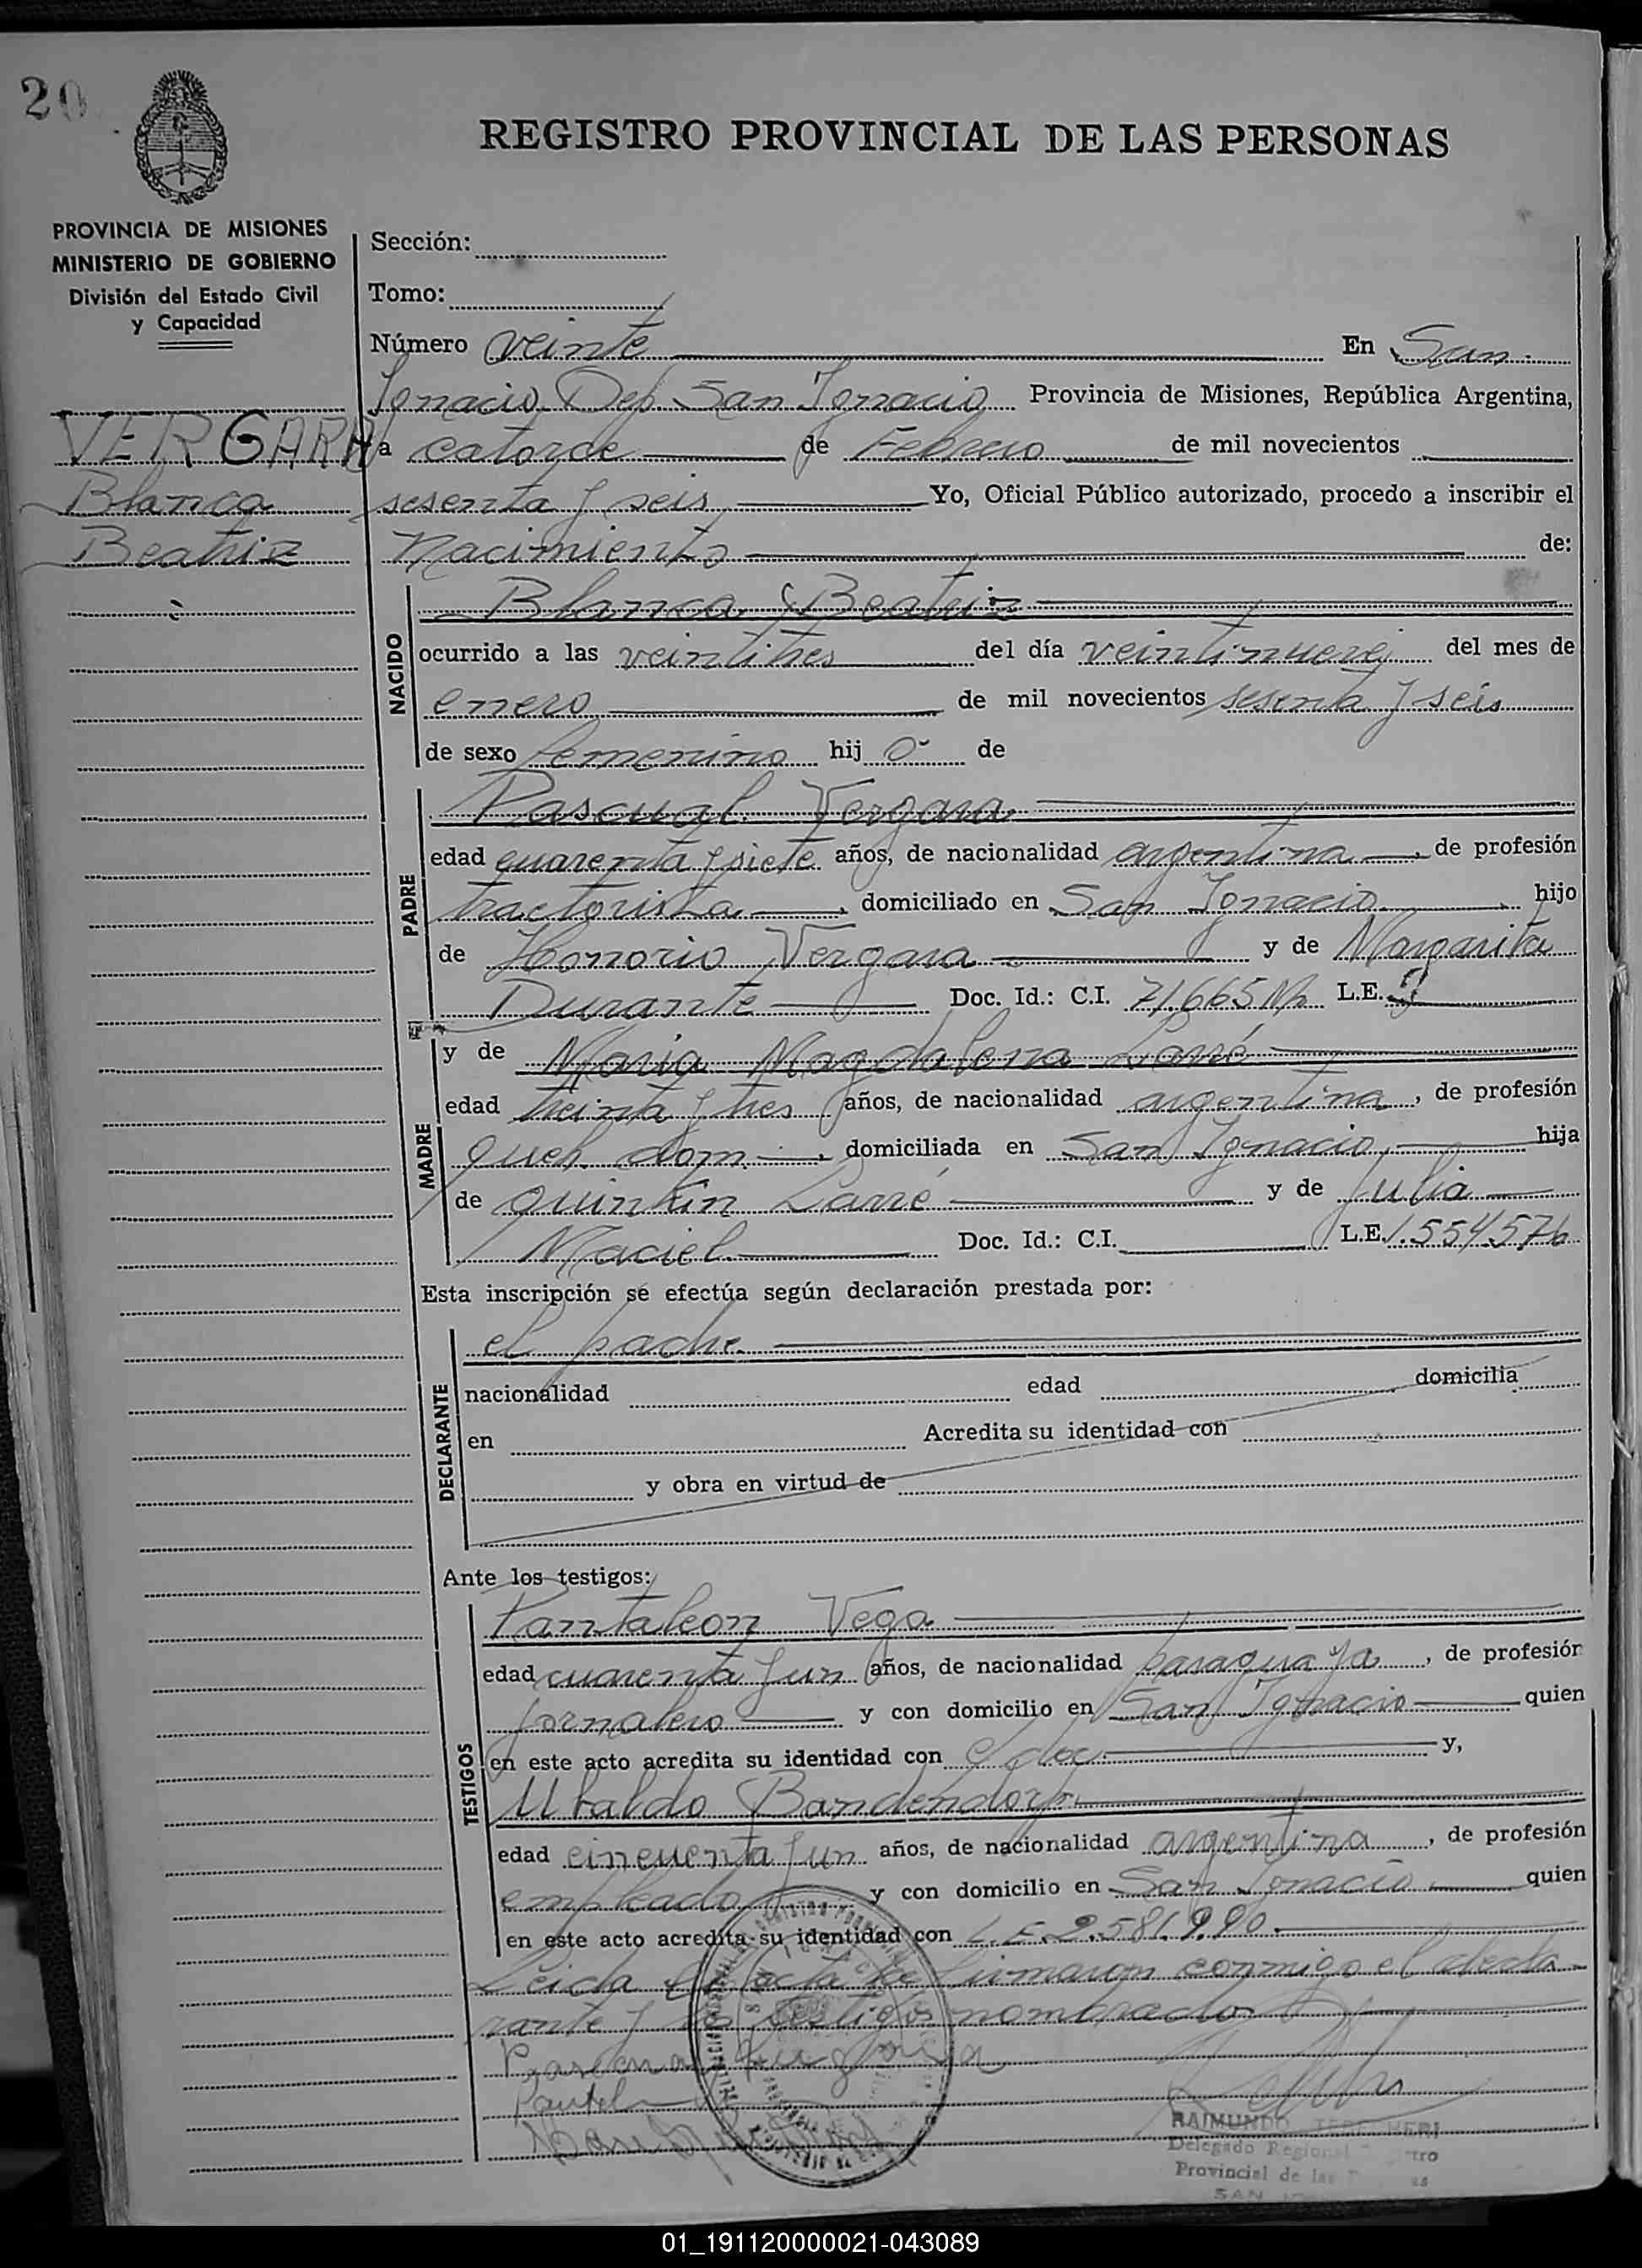 20
REGISTRO PROVINCIAL DE LAS PERSONAS
PROVINCIA DE MISIONES
MINISTERIO DE GOBIERNO
División del Estado Civil
y Capacidad
VERGARA
Blanca
Beatriz
Sección:
Tomo:
Número veinte En San
Ignacio, Dep. San Ignacio Provincia de Misiones, República Argentina,
a catorce de Febrero de mil novecientos
sesenta y seis, Yo, Oficial Público autorizado, procedo a inscribir el
Nacimiento de:
NACIDO
Blanca Beatriz
ocurrido a las veintitres del día veintinueve del mes de
enero de mil novecientos sesenta y seis
de sexo femenino hij o de
PADRE
Pascual Vergara
edad cuarenta y siete años, de nacionalidad argentina, de profesión
tractorista, domiciliado en San Ignacio, hijo
de Honorio Vergara y de Margarita
Durante Doc. Id.: C.I. 71.665 L.E.
MADRE
y de Maria Magdalena Larré
edad treinta y tres años, de nacionalidad argentina, de profesión
queh. dom. , domiciliada en San Ignacio, hija
de Quintin Larré y de Julia
Maciel Doc. Id.: C.I. L.E. 1.554576
Esta inscripción se efectúa según declaración prestada por:
DECLARANTE
el padre
nacionalidad edad domicilia
en Acredita su identidad con
y obra en virtud de
Ante los testigos:
TESTIGOS
Pantaleon Vega
edad cuarenta y un años, de nacionalidad paraguaya, de profesión
jornalero y con domicilio en San Ignacio quien
en este acto acredita su identidad con y,
Ubaldo
edad cincuenta y un años, de nacionalidad argentina, de profesión
empleado y con domicilio en San Ignacio quien
en este acto acredita su identidad con L.E. 2.581.990.
Leida el acta la firmaron conmigo el decla-
rante y los testigos nombrados
RAIMUNDO
Delegado Regional
Provincial de las
SAN
01_191120000021-043089